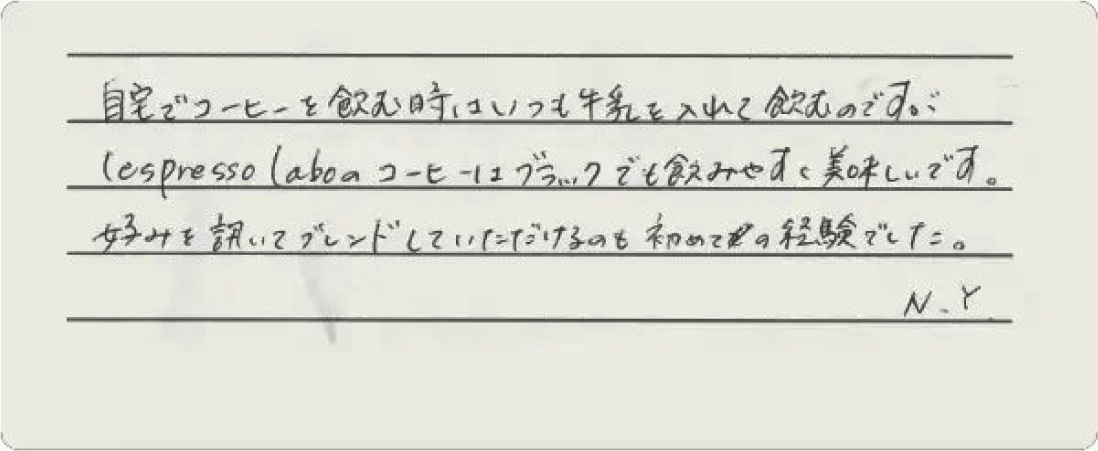 自宅でコーヒーを飲む時はいつも牛乳を入れて飲むのですが
lespresso laboのコーヒーはブラックでも飲みやすく美味しいです。
好みを訊いてブレンドしていただけるのも初めての経験でした。
N.Y.